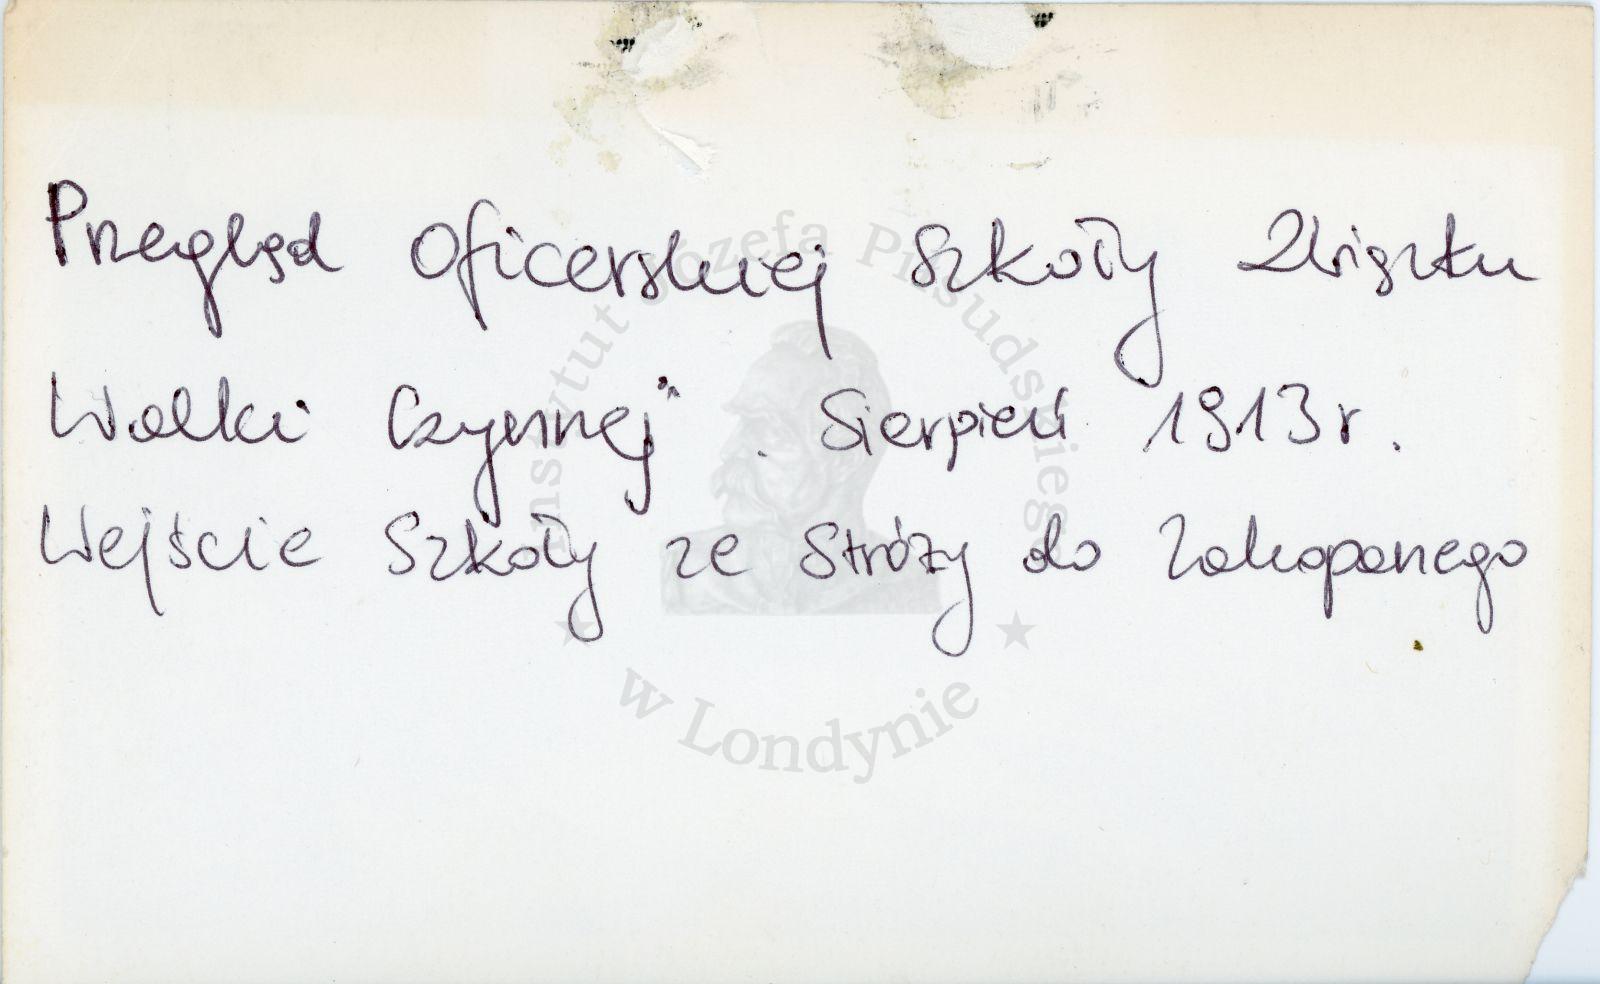 Przegląd Oficerskiej Szkoły Związku
Walki Czynnej". Sierpień 1913 r.
Wejście Szkoły ze Stróży do Zakopanego
Instytut Józefa Piłsudskiego
w Londynie